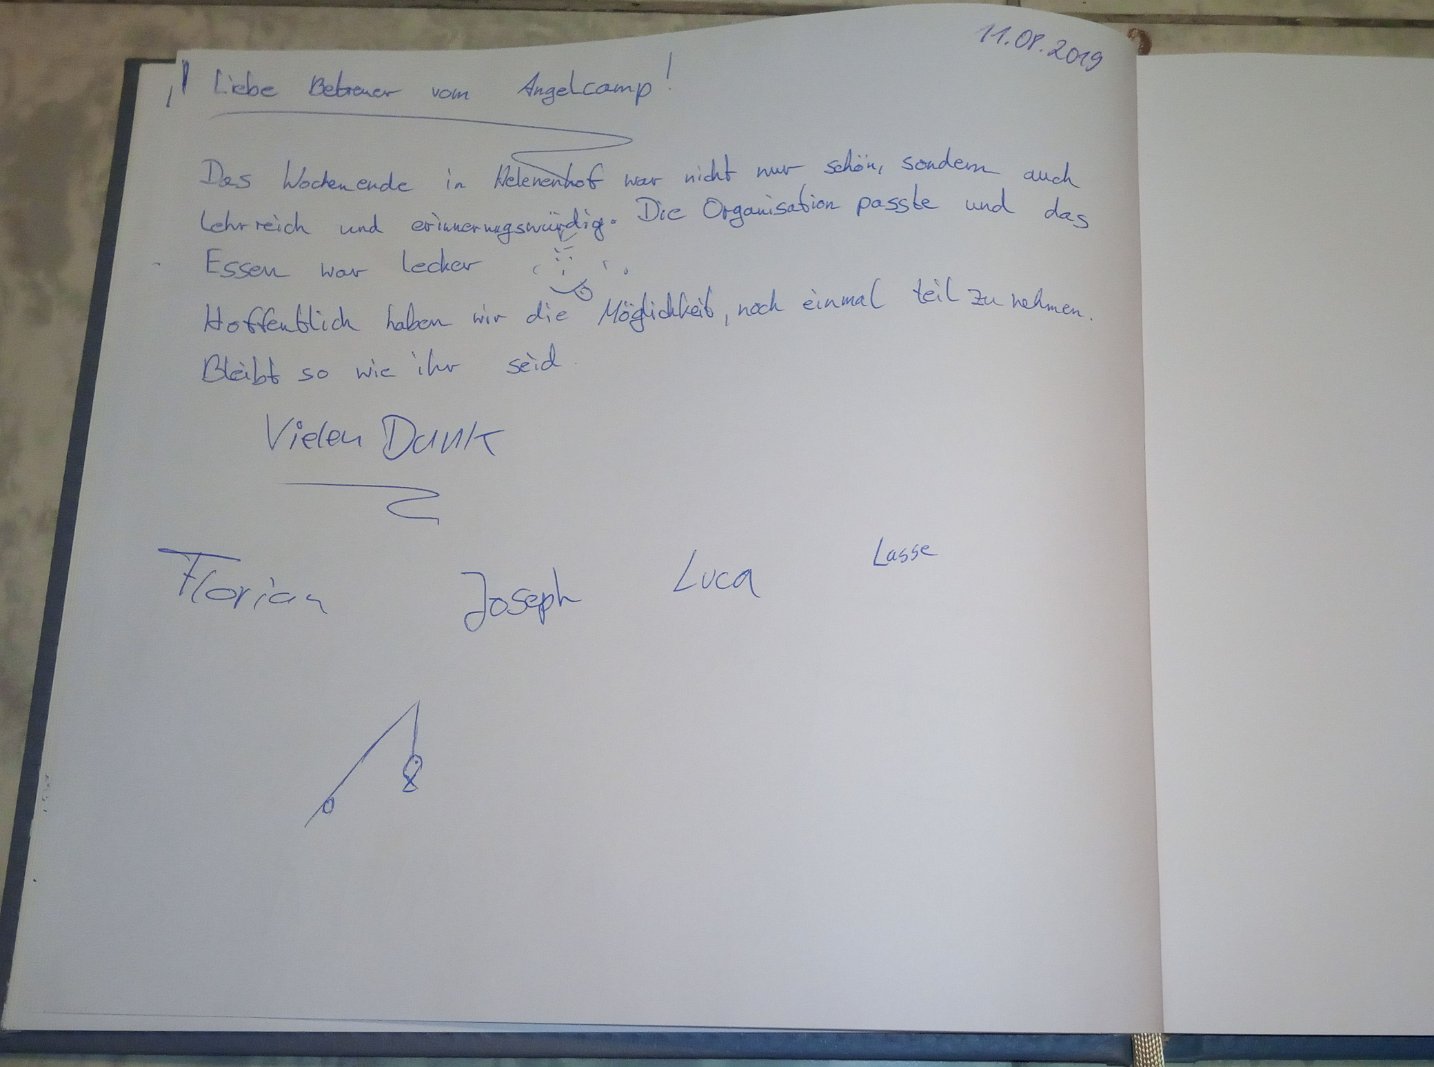 11.08.2019
Liebe Betreuer vom Angelcamp!
Das Wochenende in Helenenhof war nicht nur schön, sondern auch
lehrreich und erinnerungswürdig. Die Organisation passte und das
Essen war lecker
Hoffentlich haben wir die Möglichkeit, noch einmal teil zu nehmen.
Bleibt so wie ihr seid
Vielen Dank
Florian Joseph Luca Lasse